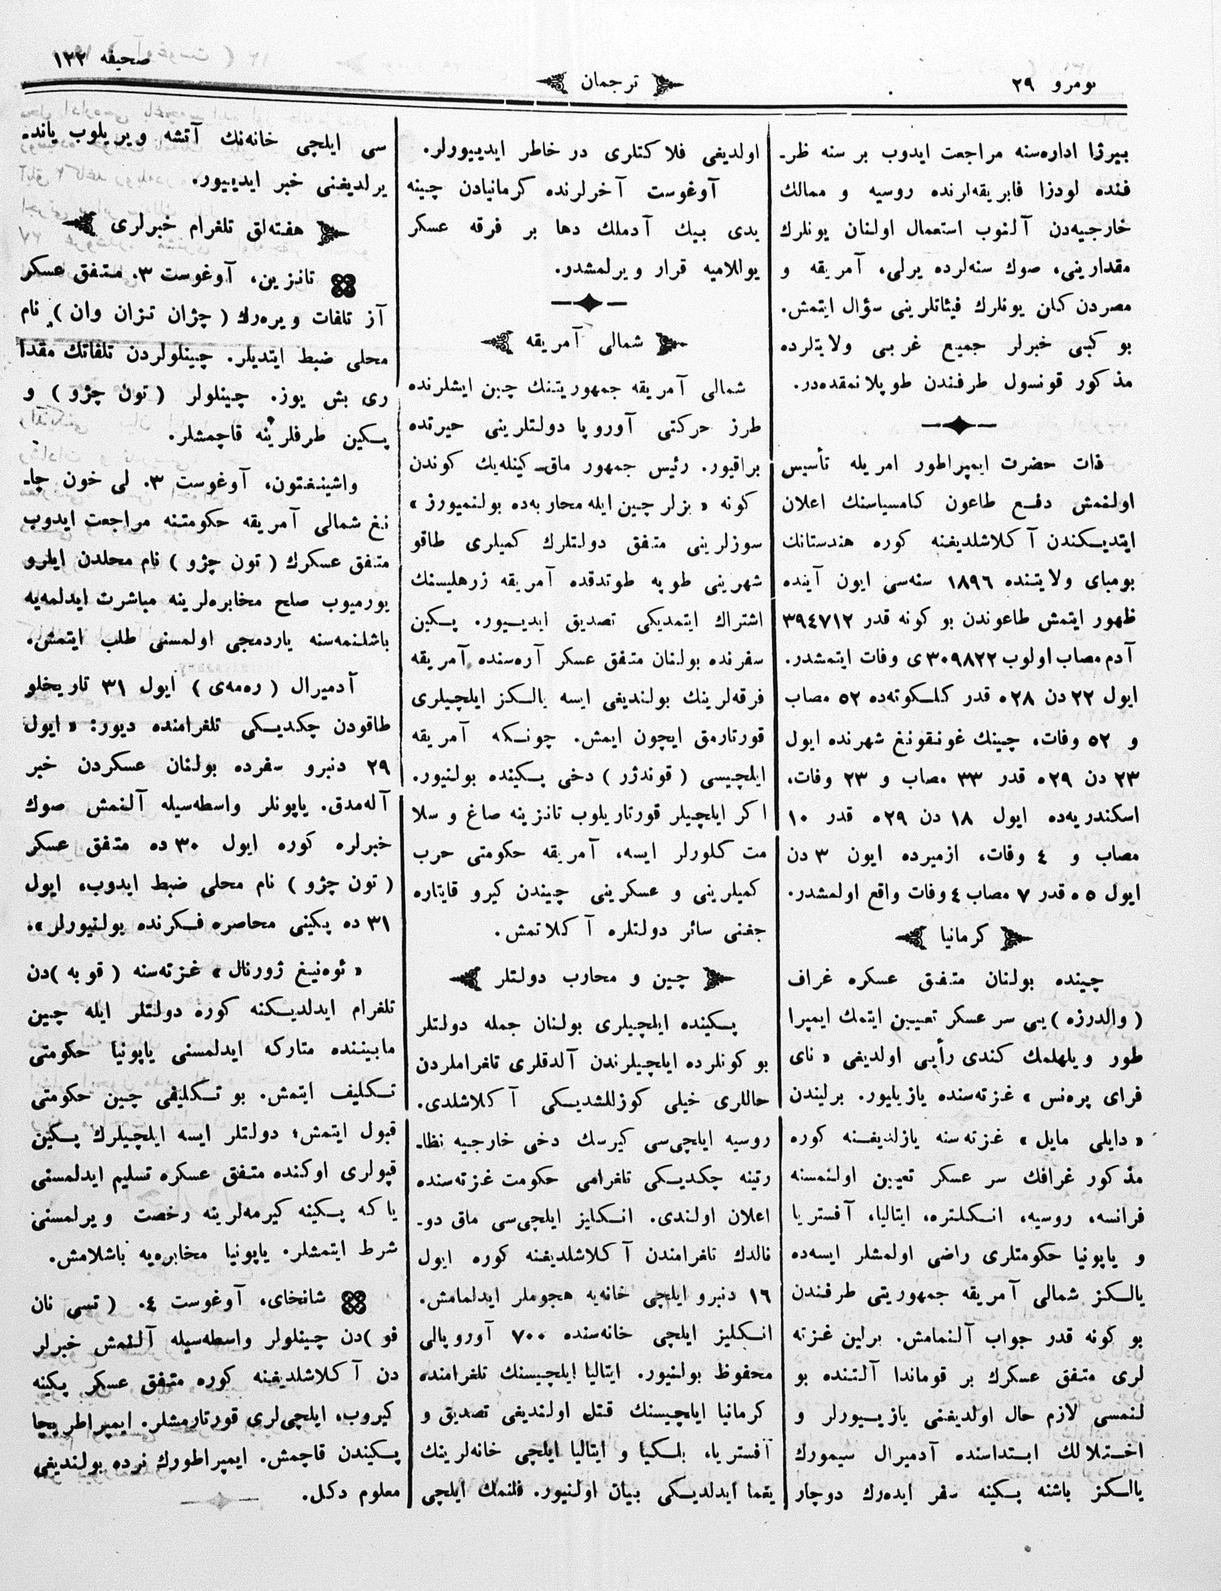 نومرو ٢٩
ترجمان
صحيفه ١٢٢
بيرژا اداره‌سنه مراجعت ايدوب بر سنه ظر‌ـ
فنده لودزا فابريقه‌لرنده روسيه و ممالك
خارجيه‌دن آلنوب استعمال اولنان يونلرك
مقدارينى، صوك سنه‌لرده يرلى، آمريقه و
مصردن كلن يونلرك فيئاتلرينى سؤال ايتمش.
بو كبى خبرلر جميع غربى ولايتلرده
مذكور قونسول طرفندن طوپلانمقده‌در.
ذات حضرت ايمپراطور امريله تأسيس
اولنمش دفع طاعون كامسياسنك اعلان
ايتديكندن آكلاشلديغنه كوره هندستانك
بومباى ولايتنده ١٨٩٦ سنه‌سى ايون آينده
ظهور ايتمش طاعوندن بو كونه قدر ٣٩٤٧١٢
آدم مصاب اولوب ٣٠٩٨٢٢ى وفات ايتمشدر.
ايول ٢٢ دن ٢٨ه قدر كلكوته‌ده ٥٢ مصاب
و ٥٢ وفات، چينك غونقونغ شهرنده ايول
٢٣ دن ٢٩ه قدر ٣٣ مصاب و ٢٣ وفات،
اسكندريه‌ده ايول ١٨ دن ٢٩ه قدر ١٠
مصاب و ٤ وفات، ازميرده ايون ٣ دن
ايول ٥ ه قدر ٧ مصاب ٤ وفات واقع اولمشدر.
كرمانيا
چينده بولنان متفق عسكره غراف
( والدرزه )يى سر عسكر تعيين ايتمك ايمپرا
طور ويلهلمك كندى رأيى اولديغى « ناى
فراى پره‌نس » غزته‌سنده يازيليور. برليندن
« دايلى مايل » غزته‌سنه يازلديغنه كوره
مذكور غرافك سر عسكر تعيين اولنمسنه
فرانسه، روسيه، انكلتره، ايتاليا، آفستريا
و ياپونيا حكومتلرى راضى اولمشلر ايسه‌ده
يالكز شمالى آمريقه جمهوريتى طرفندن
بو كونه قدر جواب آلنمامش. برلين غزته
لرى متفق عسكرك بر قوماندا آلتنده بو
لنمسى لازم حال اولديغنى يازيورلر و
اختلالك ابتداسنده آدميرال سيمورك
يالكز باشنه پكينه سفر ايده‌رك دوچار
اولديغى فلاكتلرى در خاطر ايدييورلر.
آوغوست آخرلرنده كرمانيادن چينه
يدى بيك آدملك دها بر فرقه عسكر
يوللاميه قرار ويرلمشدر.
شمالى آمريقه
شمالى آمريقه جمهوريتنك چين ايشلرنده
طرز حركتى آوروپا دولتلرينى حيرتده
براقيور. رئيس جمهور ماق‌ـ كينله‌يك كوندن
كونه « بزلر چين ايله محاربه‌ده بولنميورز »
سوزلرينى متفق دولتلرك كميلرى طاقو
شهرينى طوپه طوتدقده آمريقه زرهليسنك
اشتراك ايتمديكى تصديق ايدييور. پكين
سفرنده بولنان متفق عسكر آره‌سنده آمريقه
فرقه‌لرينك بولنديغى ايسه يالكز ايلچيلرى
قورتارمق ايچون ايمش. چونكه آمريقه
ايلچيسى ( قوندژر ) دخى پكينده بولنيور.
اكر ايلچيلر قورتاريلوب تانزينه صاغ و سلا
مت كلورلر ايسه، آمريقه حكومتى حرب
كميلرينى و عسكرينى چيندن كيرو قايتاره
جغنى سائر دولتلره آكلاتمش.
چين و محارب دولتلر
پكينده ايلچيلرى بولنان جمله دولتلر
بو كونلرده ايلچيلرندن آلدقلرى تلغراملردن
حاللرى خيلى كوزللشديكى آكلاشلدى.
روسيه ايلچى‌سى كيرسك دخى خارجيه نظا‌ـ
رتينه چكديكى تلغرامى حكومت غزته‌سنده
اعلان اولندى. انكليز ايلچى‌سى ماق دو‌ـ
نالدك تلغرامندن آكلاشلديغنه كوره ايول
١٦ دنبرو ايلچى خانه‌يه هجوملر ايدلمامش.
انكليز ايلچى خانه‌سنده ٧٠٠ آوروپالى
محفوظ بولنيور. ايتاليا ايلچيسنك تلغرامنده
كرمانيا ايلچيسنك قتل اولنديغى تصديق و
آفستريا، بلكيا و ايتاليا ايلچى خانه‌لرينك
يغما ايدلديكى بيان اولنيور. فلمنك ايلچى
سى ايلچى خانه‌نك آتشه ويريلوب ياند‌ـ
يرلديغنى خبر ايدييور.
هفته‌لق تلغرام خبرلرى
تانزين، آوغوست ٣. متفق عسكر
آز تلفات ويره‌رك ( چژان تزان وان ) نام
محلى ضبط ايتديلر. چينلولردن تلفاتك مقدا
رى بش يوز. چينلولر ( تون چژو ) و
پكين طرفلرينه قاچمشلر.
واشينغتون، آوغوست ٣. لى خون چا‌ـ
نغ شمالى آمريقه حكومتنه مراجعت ايدوب
متفق عسكرك ( تون چژو ) نام محلدن ايلرو
يورميوب صلح مخابره‌لرينه مباشرت ايدلمه‌يه
باشلنمه‌سنه ياردمجى اولمسنى طلب ايتمش.
آدميرال ( ره‌مه‌ى ) ايول ٣١ تاريخلو
طاقودن چكديكى تلغرامنده ديور: « ايول
٢٩ دنبرو سفرده بولنان عسكردن خبر
آله‌مدق. ياپونلر واسطه‌سيله آلنمش صوك
خبرلره كوره ايول ٣٠ ده متفق عسكر
( تون چژو ) نام محلى ضبط ايدوب، ايول
٣١ ده پكينى محاصره فكرنده بولنيورلر ».
« ئوه‌نيغ ژورنال » غزته‌سنه ( قوبه )دن
تلغرام ايدلديكنه كوره دولتلر ايله چين
مابيننده متاركه ايدلمسنى ياپونيا حكومتى
تكليف ايتمش. بو تكليفى چين حكومتى
قبول ايتمش؛ دولتلر ايسه ايلچيلرك پكين
قپولرى اوكنده متفق عسكره تسليم ايدلمسنى
ياكه پكينه كيرمه‌لرينه رخصت ويرلمسنى
شرط ايتمشلر. ياپونيا مخابره‌يه باشلامش.
شانخاى، آوغوست ٤. ( تسى نان
فو )دن چينلولر واسطه‌سيله آلنمش خبرلر
دن آكلاشلديغنه كوره متفق عسكر پكينه
كيروب، ايلچى‌لرى قورتارمشلر. ايمپراطريچا
پكيندن قاچمش. ايمپراطورك نرده بولنديغى
معلوم دكل.